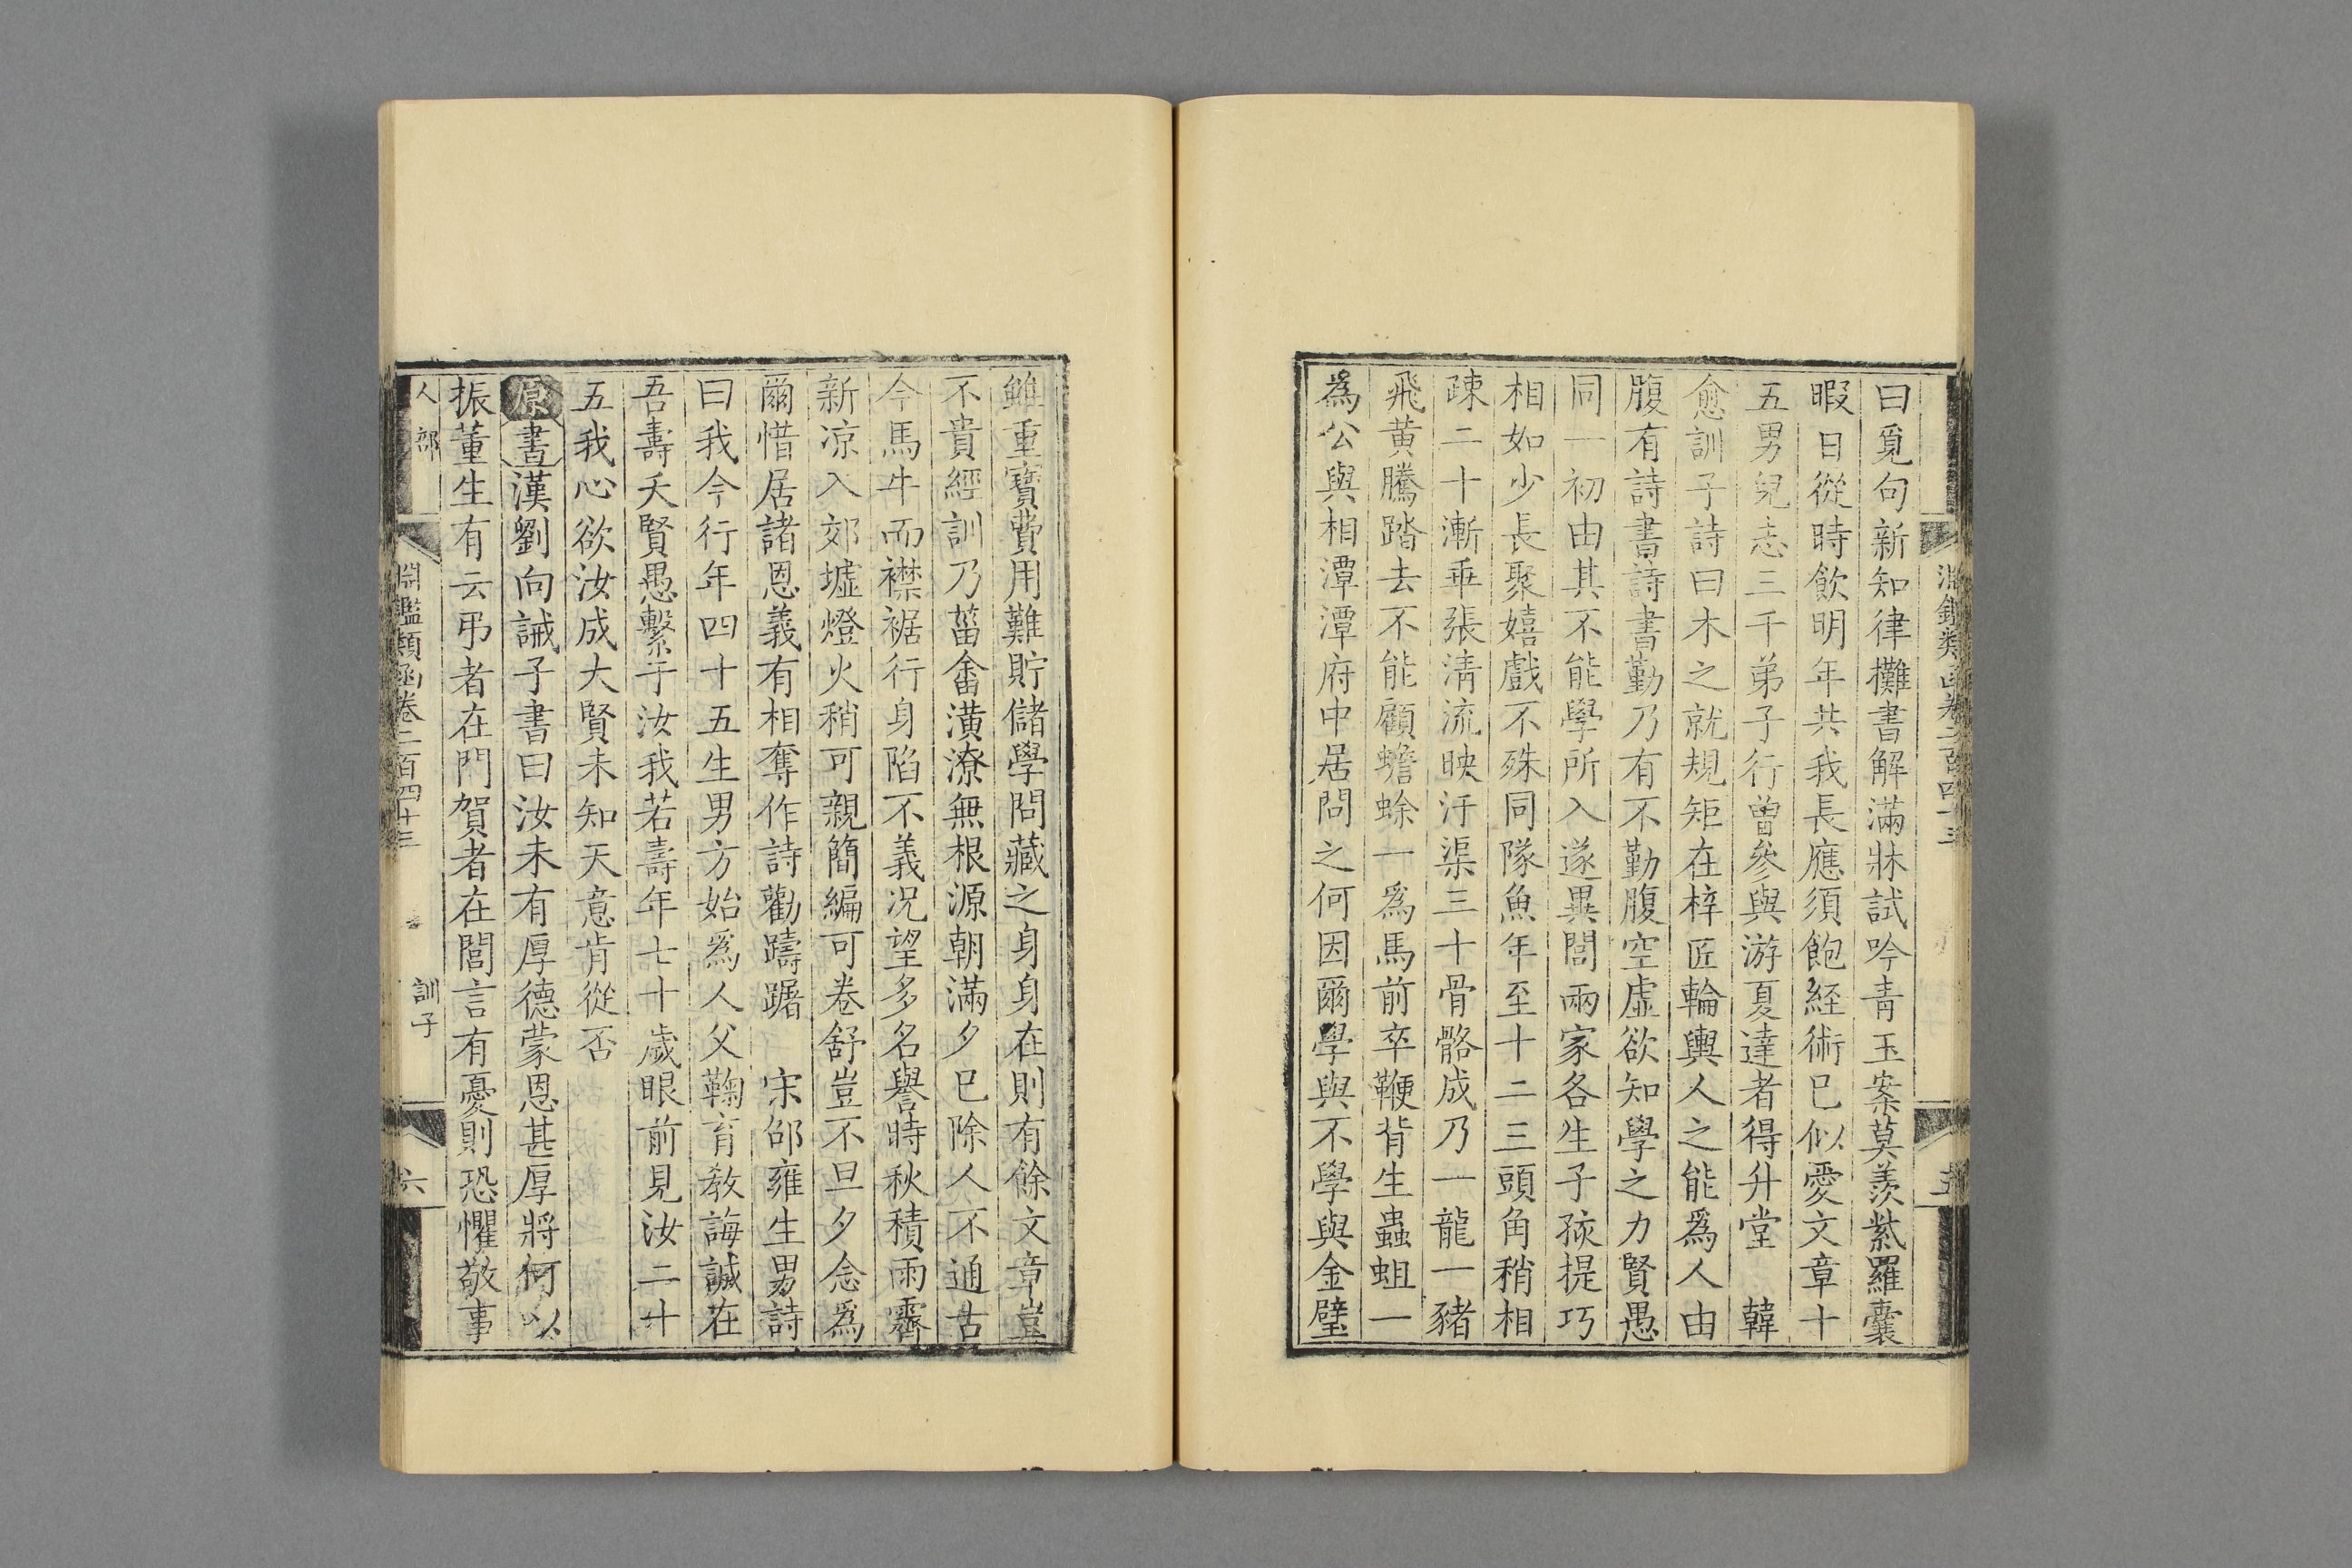 曰覓句新知律攤書解滿牀試吟青玉案莫羨紫羅囊
暇日從時飲明年共我長應須飽経術巳似愛文章十
五男兒志三千弟子行曾參與游夏達者得升堂　韓
愈訓子詩曰木之就規矩在梓匠輪輿人之能爲人由
腹有詩書詩書勤乃有不勤腹空虛欲知學之力賢愚
同一初由其不能學所入遂異閭兩家各生子孩提巧
相如少長聚嬉戲不殊同隊魚年至十二三頭角稍相
疎二十漸乖張清流映汙渠三十骨骼成乃一龍一豬
飛黃騰踏去不能顧蟾蜍一爲馬前卒鞭背生蟲蛆一
爲公與相潭潭府中居問之何因爾學與不學與金璧
雖重寶費用難貯儲學問藏之身身在則有餘文章豈
不貴經訓乃菑畬潢潦無根源朝滿夕巳除人不通古
今馬牛而襟裾行身陷不義况望多名譽時秋積雨霽
新凉入郊墟燈火稍可親簡編可卷舒豈不旦夕念爲
爾惜居諸恩義有相奪作詩勸躊躇　宋邵雍生男詩
曰我今行年四十五生男方始爲人父鞠育教誨誠在
吾壽夭賢愚繫于汝我若壽年七十歲眼前見汝二十
五我心欲汝成大賢未知天意肯從否
原書漢劉向誡子書曰汝未有厚德蒙恩甚厚將何以
振董生有云弔者在門賀者在閭言有憂則恐懼敬事
人部
淵鑑類函卷二百四十三
訓子
六